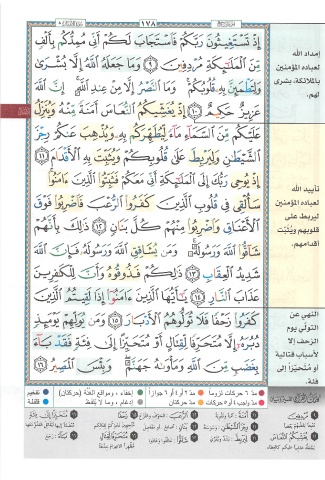 ١٧٨
إِذْ تَسْتَغِيثُونَ رَبَّكُمْ فَاسْتَجَابَ لَكُمْ أَنِّي مُمِدُّكُم بِأَلْفٍ
مِّنَ الْمَلَائِكَةِ مُرْدِفِينَ ٩ وَمَا جَعَلَهُ اللَّهُ إِلَّا بُشْرَىٰ
وَلِتَطْمَئِنَّ بِهِ قُلُوبُكُمْ وَمَا النَّصْرُ إِلَّا مِنْ عِندِ اللَّهِ إِنَّ اللَّهَ
عَزِيزٌ حَكِيمٌ ١٠ إِذْ يُغَشِّيكُمُ النُّعَاسَ أَمَنَةً مِّنْهُ وَيُنَزِّلُ
عَلَيْكُم مِّنَ السَّمَاءِ مَاءً لِّيُطَهِّرَكُم بِهِ وَيُذْهِبَ عَنكُمْ رِجْزَ
الشَّيْطَانِ وَلِيَرْبِطَ عَلَىٰ قُلُوبِكُمْ وَيُثَبِّتَ بِهِ الْأَقْدَامَ ١١
إِذْ يُوحِي رَبُّكَ إِلَى الْمَلَائِكَةِ أَنِّي مَعَكُمْ فَثَبِّتُوا الَّذِينَ ءَامَنُوا
سَأُلْقِي فِي قُلُوبِ الَّذِينَ كَفَرُوا الرُّعْبَ فَاضْرِبُوا فَوْقَ
الْأَعْنَاقِ وَاضْرِبُوا مِنْهُمْ كُلَّ بَنَانٍ ١٢ ذَٰلِكَ بِأَنَّهُمْ
شَاقُّوا اللَّهَ وَرَسُولَهُ وَمَن يُشَاقِقِ اللَّهَ وَرَسُولَهُ فَإِنَّ اللَّهَ
شَدِيدُ الْعِقَابِ ١٣ ذَٰلِكُمْ فَذُوقُوهُ وَأَنَّ لِلْكَافِرِينَ
عَذَابَ النَّارِ ١٤ يَا أَيُّهَا الَّذِينَ ءَامَنُوا إِذَا لَقِيتُمُ الَّذِينَ
كَفَرُوا زَحْفًا فَلَا تُوَلُّوهُمُ الْأَدْبَارَ ١٥ وَمَن يُوَلِّهِمْ يَوْمَئِذٍ
دُبُرَهُ إِلَّا مُتَحَرِّفًا لِّقِتَالٍ أَوْ مُتَحَيِّزًا إِلَىٰ فِئَةٍ فَقَدْ بَاءَ
بِغَضَبٍ مِّنَ اللَّهِ وَمَأْوَاهُ جَهَنَّمُ وَبِئْسَ الْمَصِيرُ ١٦
إمداد الله
لعباده المؤمنين
بالملائكة، بشرى
لهم
تأييد الله
لعباده المؤمنين
ليربط على
قلوبهم ويُثَبِّت
أقدامهم.
النهي عن
التولّي يوم
الزحف إلا
لأسباب قتالية
أو مُتَحَيِّزاً إلى
فئة.
مدّ ٦ حركات لزوماً
مدّ ٢ أو ٤ أو ٦ جوازاً
إخفاء، ومواقع الغُنَّة (حركتان)
تفخيم
مدّ حركتان
إدغام، وما لا يُلفَظ
قلقلة